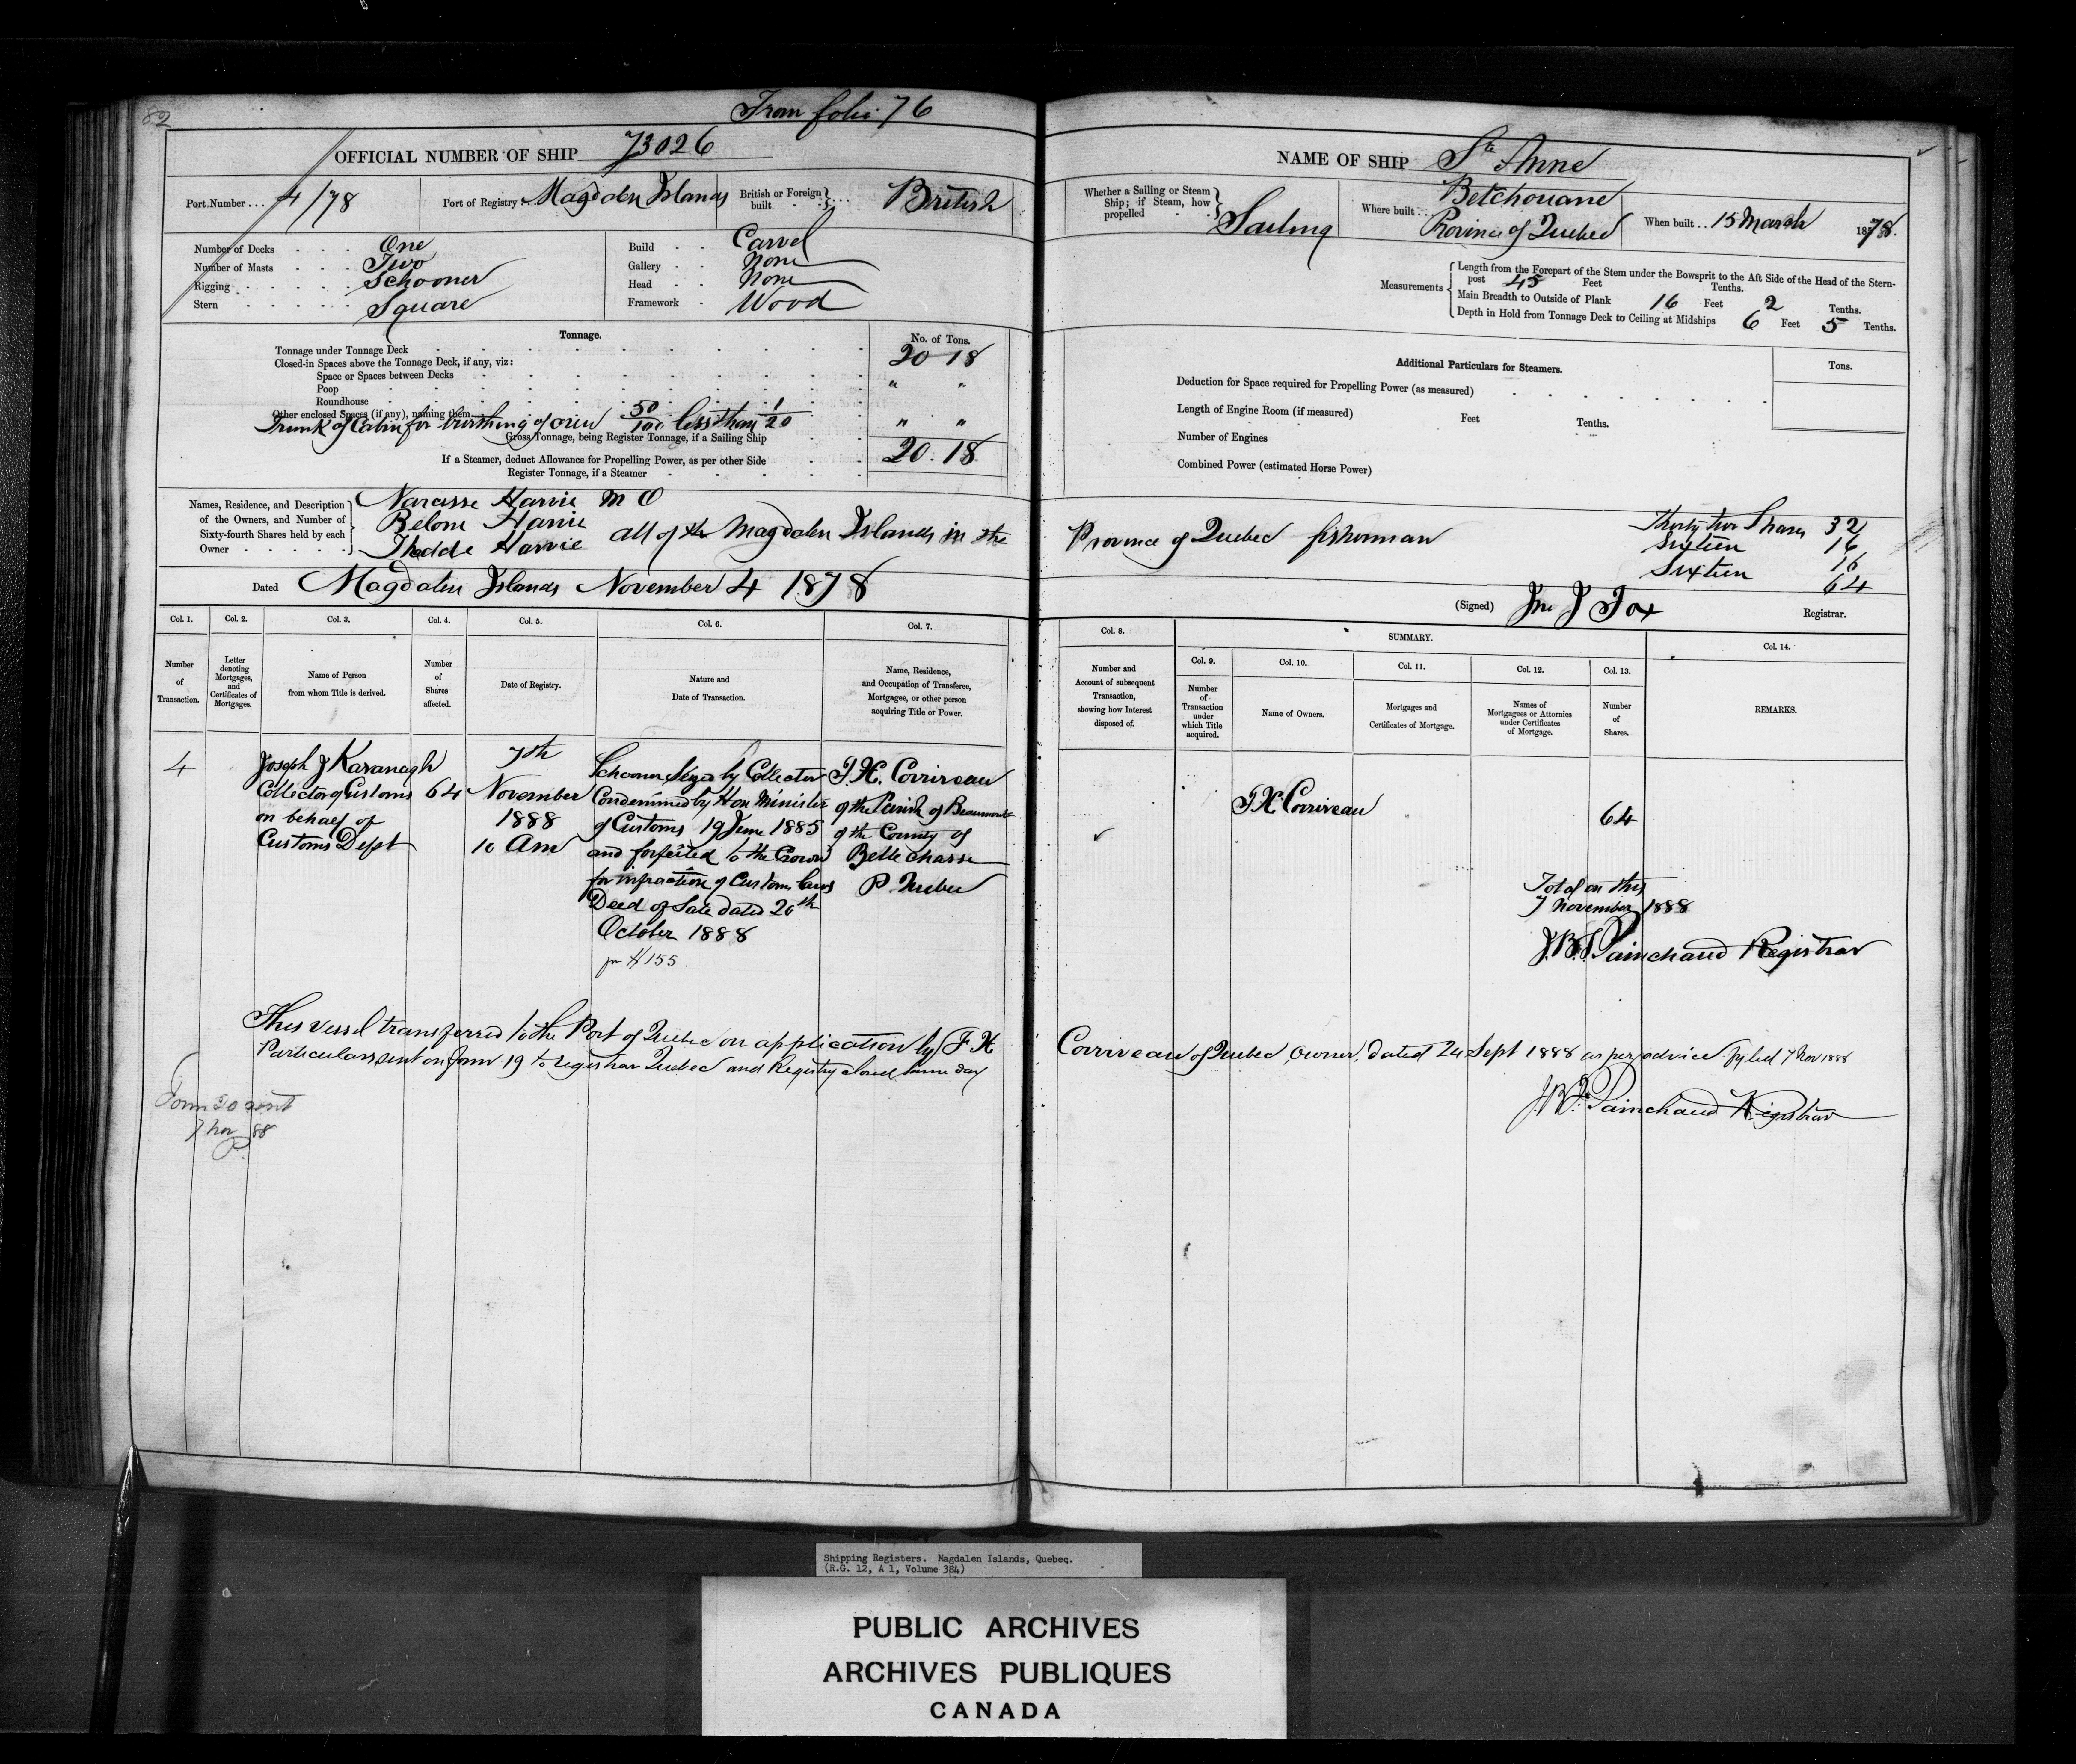 82
From folio 76
OFFICIAL NUMBER OF SHIP 73026
Port Number ... 4/78
Port of Registry Magdalen Islands
British or Foreign built ... British
Number of Decks One
Number of Masts Two
Rigging Schooner
Stern Square
Build Carvel
Gallery None
Head None
Framework Wood
Tonnage.
No. of Tons.
Tonnage under Tonnage Deck 20 18
Closed-in Spaces above the Tonnage Deck, if any, viz:
Space or Spaces between Decks " "
Poop
Roundhouse
Other enclosed Spaces (if any), naming them
Trunk of Cabin for berthing of crew 50/100 less than 1/20 " "
Gross Tonnage, being Register Tonnage, if a Sailing Ship 20.18
If a Steamer, deduct Allowance for Propelling Power, as per other Side
Register Tonnage, if a Steamer
Names, Residence, and Description of the Owners, and Number of Sixty-fourth Shares held by each Owner
Narcisse Harvie M O
Belone Harvie
Thadde Harvie
all of the Magdalen Islands in the
Dated Magdalen Islands November 4 1878
Col. 1. Col. 2. Col. 3. Col. 4. Col. 5. Col. 6. Col. 7.
Number of Transaction.
Letter denoting Mortgages, and Certificates of Mortgages.
Name of Person from whom Title is derived.
Number of Shares affected.
Date of Registry.
Nature and Date of Transaction.
Name, Residence, and Occupation of Transferee, Mortgagee, or other person acquiring Title or Power.
4
Joseph J Kavanagh
Collector of Customs
on behalf of
Customs Dept
64
7th
November
1888
10 Am
Schooner Seized by Collector
Condemned by Hon Minister
of Customs 19 June 1885
and forfeited to the Crown
for infraction of Customs laws
Deed of Sale dated 20th
October 1888
for $155
F. X. Corriveau
of the Parish of Beaumont
of the County of
Bellechasse
P. Quebec
This vessel transferred to the Port of Quebec on application by F X
Particulars sent on form 19 to registrar Quebec and Registry closed same day
Form 20 sent
7 Nov 88
P.
NAME OF SHIP Ste Anne
Whether a Sailing or Steam Ship; if Steam, how propelled Sailing
Where built ... Betchouane
Province of Quebec
When built .. 15 March 1878.
Measurements
Length from the Forepart of the Stem under the Bowsprit to the Aft Side of the Head of the Stern-
post 45 Feet Tenths.
Main Breadth to Outside of Plank 16 Feet 2 Tenths.
Depth in Hold from Tonnage Deck to Ceiling at Midships 6 Feet 5 Tenths.
Additional Particulars for Steamers.
Tons.
Deduction for Space required for Propelling Power (as measured)
Length of Engine Room (if measured) Feet Tenths.
Number of Engines
Combined Power (estimated Horse Power)
Province of Quebec fisherman
Thirty two Shares 32
Sixteen 16
Sixteen 16
64
(Signed) Jno J Fox Registrar.
Col. 8. SUMMARY. Col. 14.
Col. 9. Col. 10. Col. 11. Col. 12. Col. 13.
Number and Account of subsequent Transaction, showing how Interest disposed of.
Number of Transaction under which Title acquired.
Name of Owners.
Mortgages and Certificates of Mortgage.
Names of Mortgagees or Attornies under Certificates of Mortgage.
Number of Shares.
REMARKS.
F X Corriveau
64
Total on this
7 November 1888
J.B.F. Painchaud Registrar
Corriveau of Quebec owner dated 24 Sept 1888 as per advice fyled 7 Nov 1888
J.B.F. Painchaud Registrar
Shipping Registers. Magdalen Islands, Quebec.
(R.G. 12, A 1, Volume 384)
PUBLIC ARCHIVES
ARCHIVES PUBLIQUES
CANADA